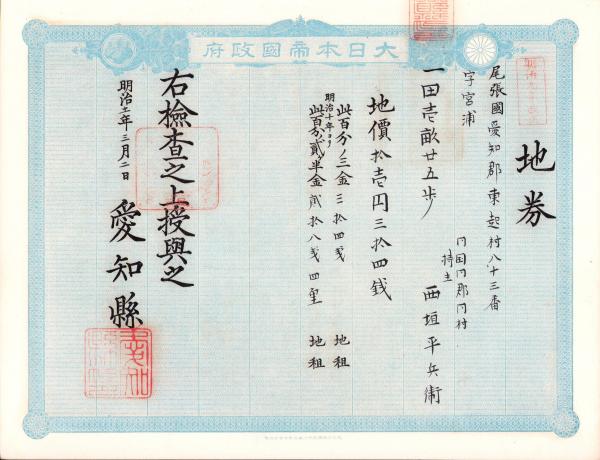 大日本帝國政府
地券
尾張國愛知郡東起村八十三番
字宮浦
一田壱畝廿五歩
同国同郡同村
持主 西垣平兵衛
地價拾壱円三拾四銭
此百分ノ三金三拾四銭 地租
明治十年ヨリ
此百分貳ヶ半金貳拾八銭四厘 地租
右檢査之上授與之
明治十一年三月二日
愛知縣